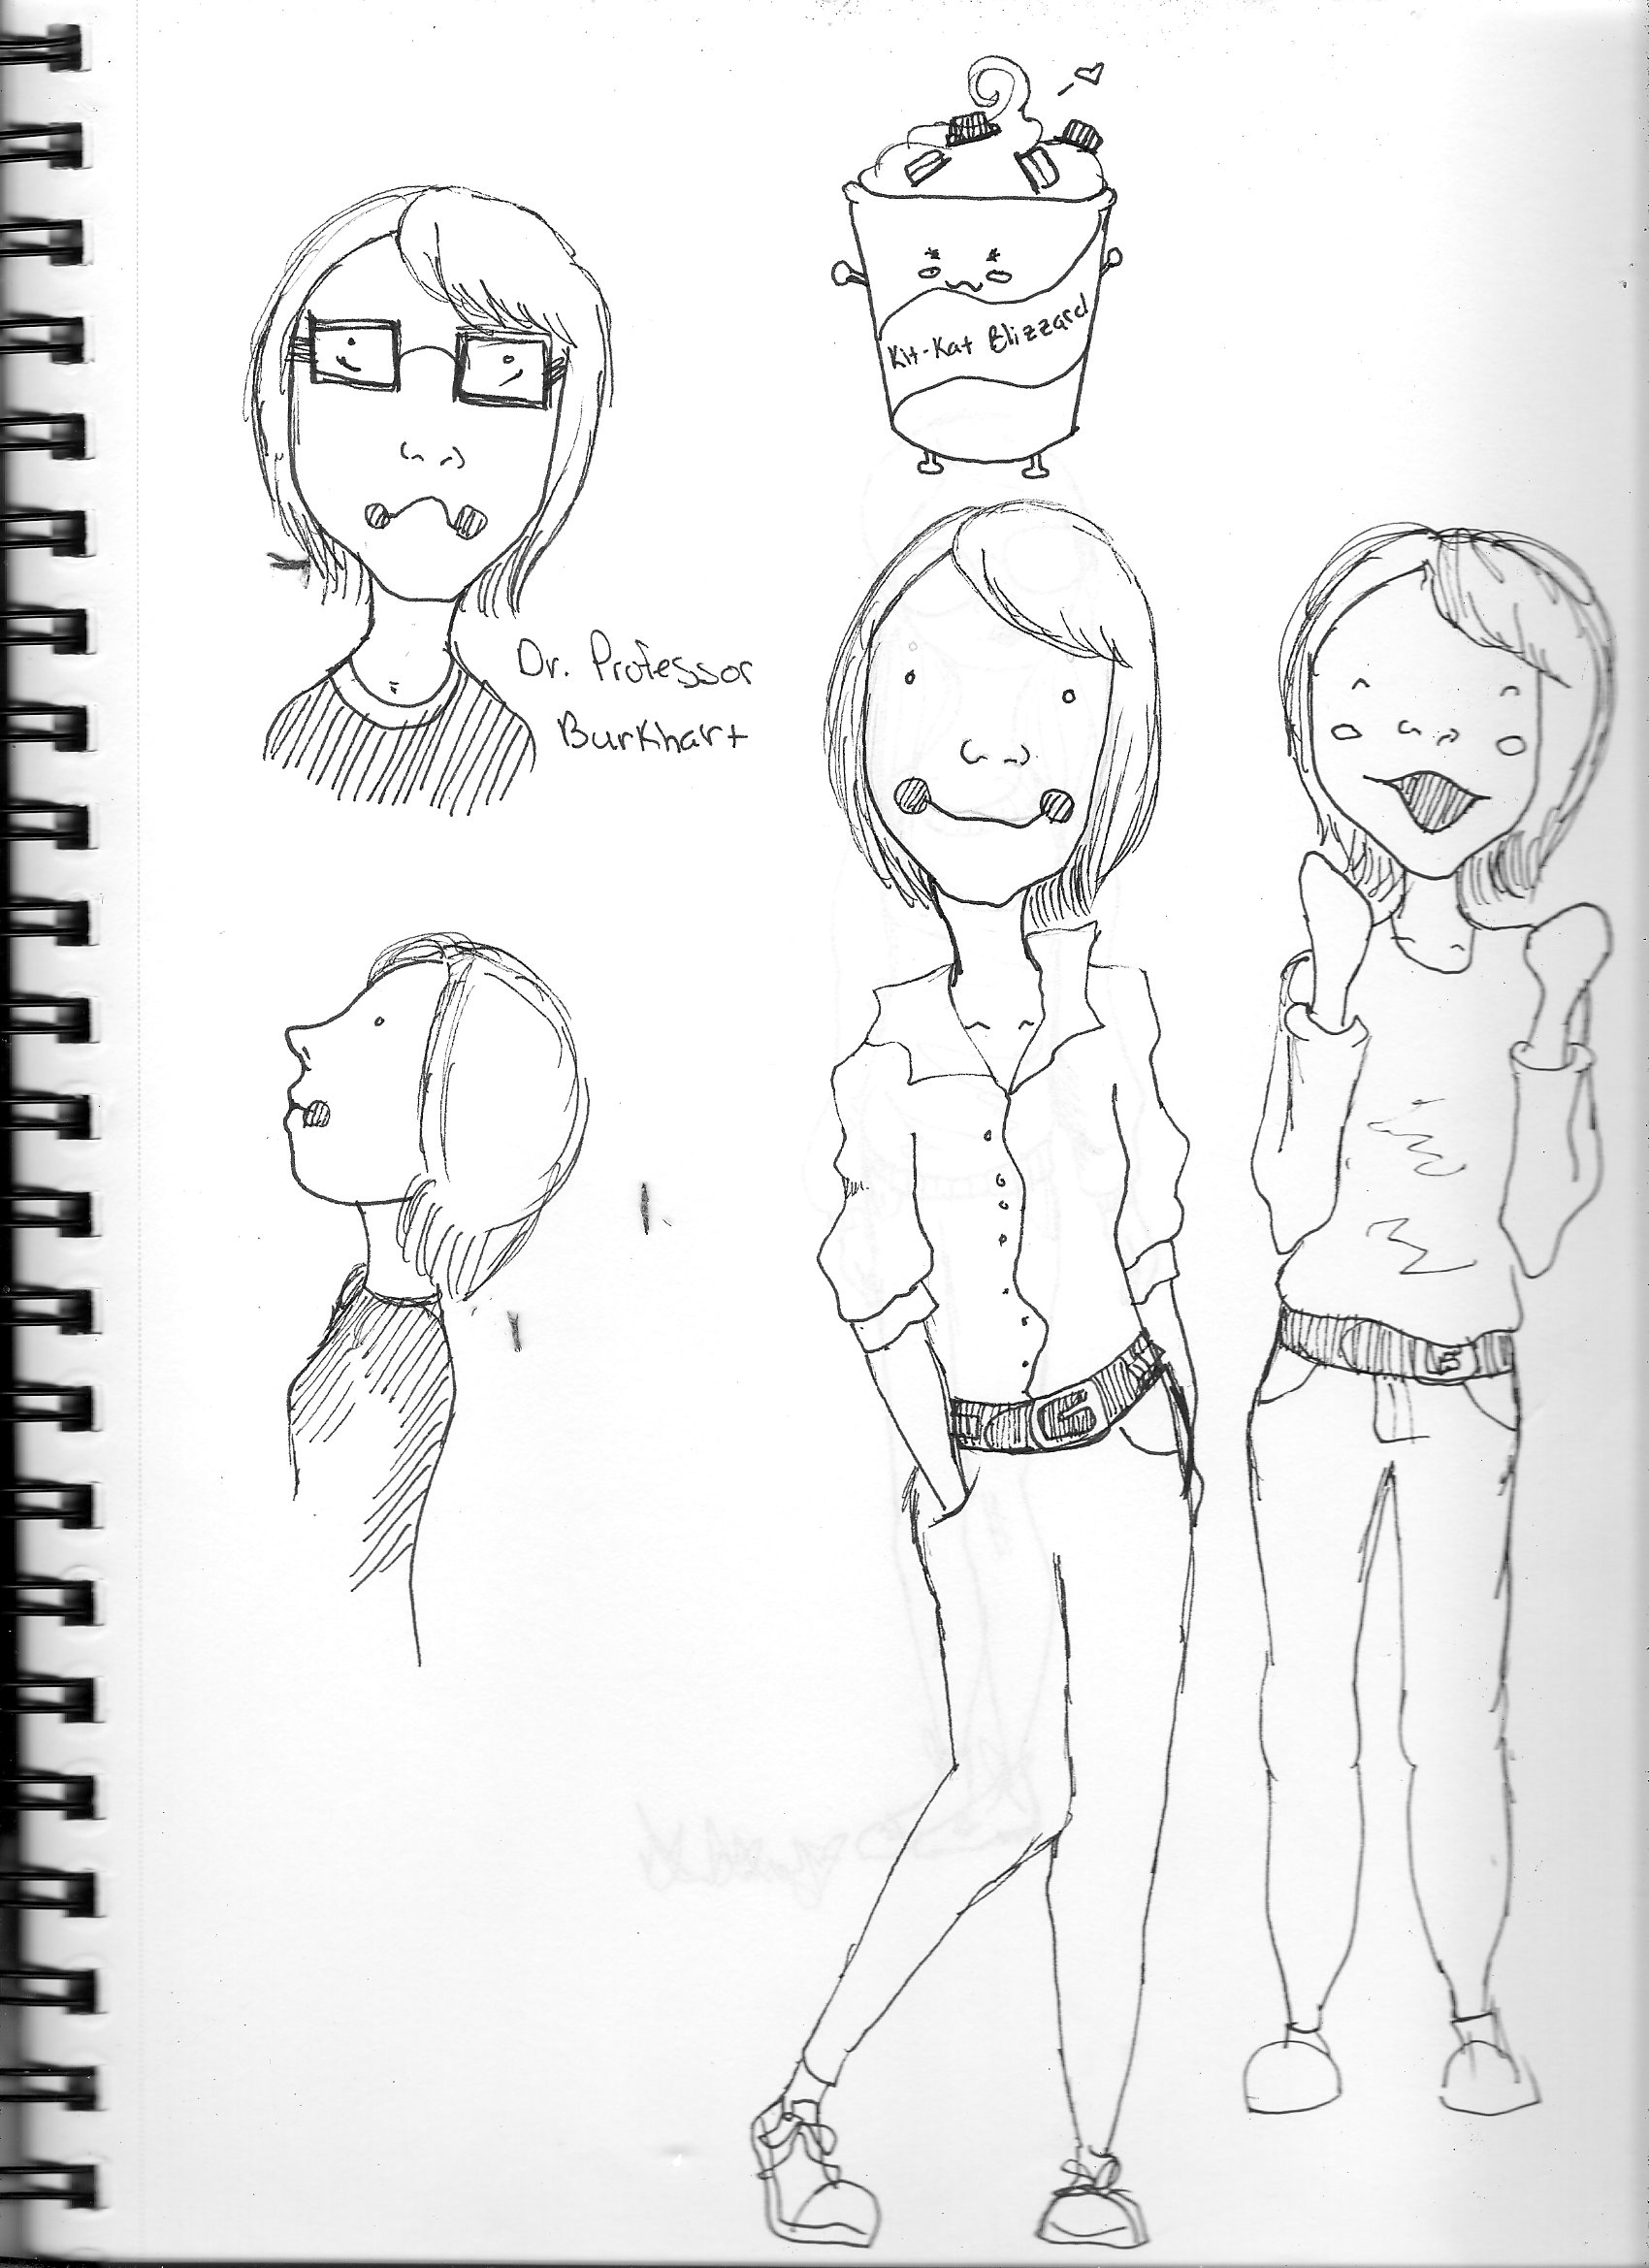 Kit-Kat Blizzard
Dr. Professor
Burkhart